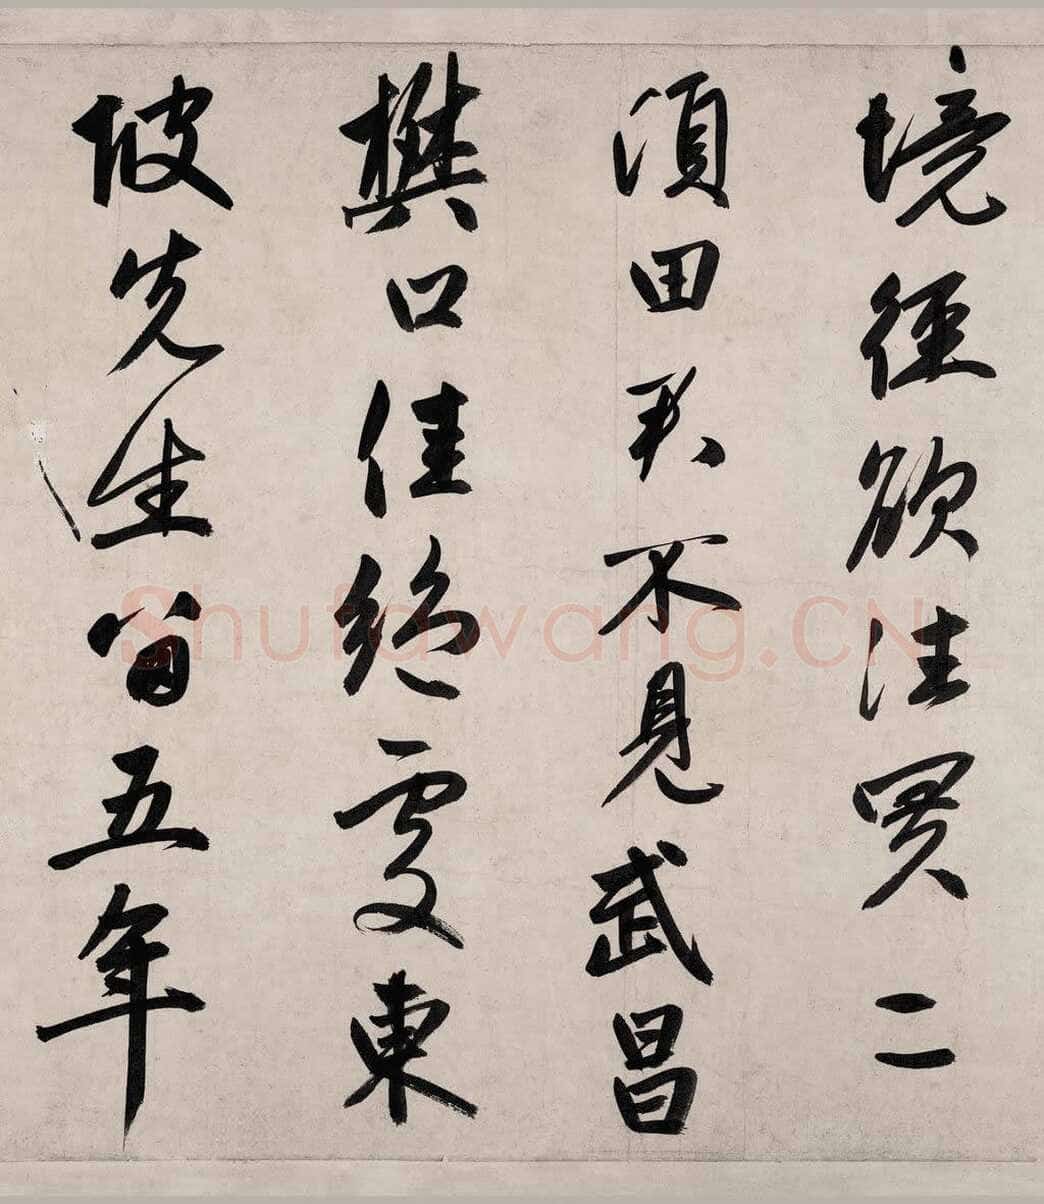 境徑欲往買二
頃田君不見武昌
樊口佳絕處東
坡先生留五年
Shufawang.CN